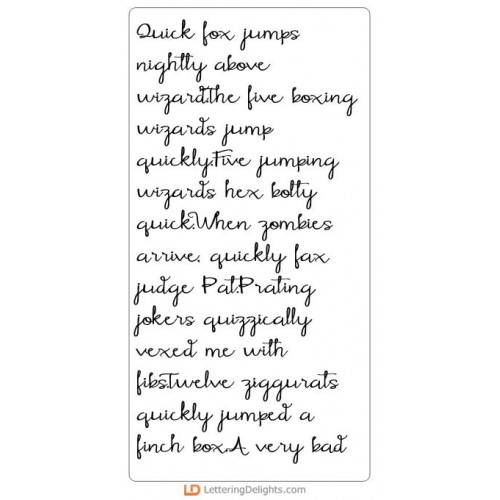 Quick fox jumps
nightly above
wizard.the five boxing
wizards jump
quickly.Five jumping
wizards hex bolty
quick.When zombies
arrive, quickly fax
judge Pat.Prating
jokers quizzically
vexed me with
fibs.Twelve ziggurats
quickly jumped a
finch box.A very bad
LD LetteringDelights.com